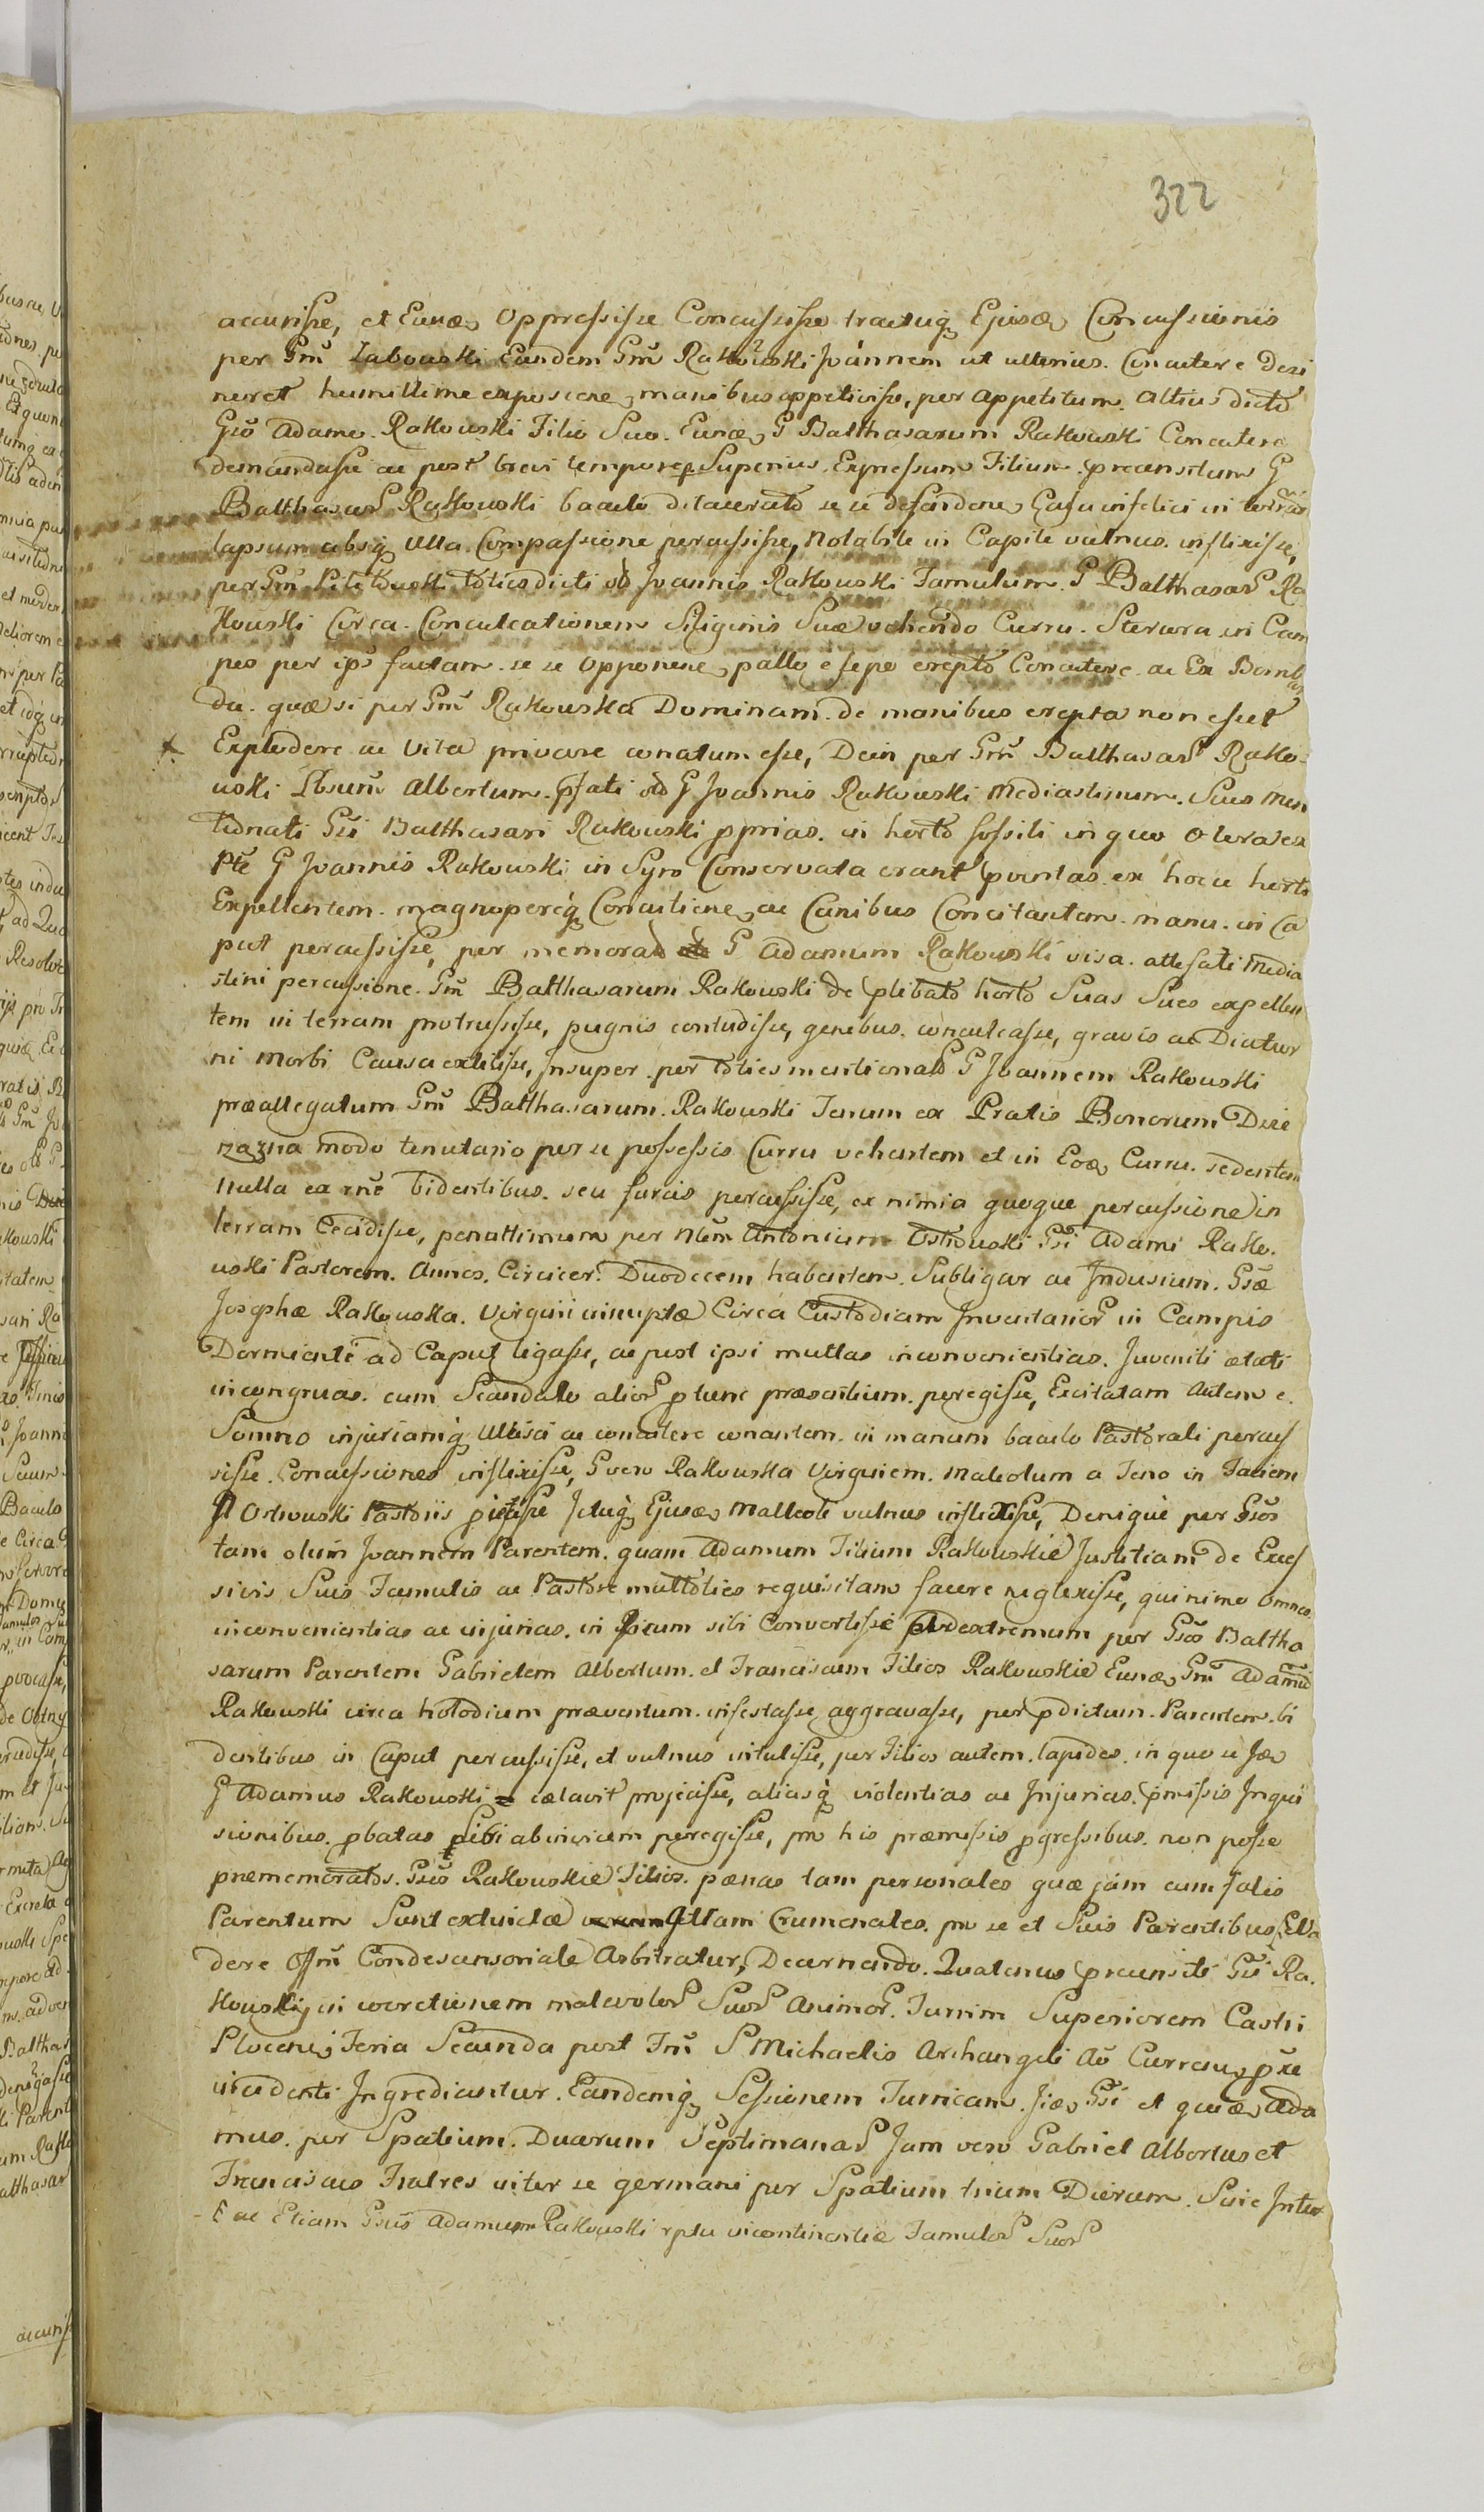 322
accurisse, et Eundem Oppressisse Concussisse tractuq Ejusdem Concussionis
per Gsm Zabowski Eundem Gsm Rakowski Joannem ut ulterius Concutere desi
neret humillime exposcere manibus appetivisse, per appetitum altius dicto
Gso Adamo Rakowski Filio Suo Eundem G Balthasarum Rakowski Concutere
demandasse ac post brevi tempore Superius Expressum Filium precensitum G
Balthasar Rakowski baculo dilacerato se se defendere Casu infelici in terram
lapsum absq Ulla Compassione percussisse, Notabile in Capite vulnus inflixisse,
per Gsm toties dicti Joannis Rakowski Famulum G Balthasar Ra
kowski Circa Conculcationem Siliginis Suæ vehendo Curru Stercora in Cam
pos per ips factam se se Opponere pallo e sepe erepto Concutere ac Ex Bomb
da quæ si per Gsm Rakowska Dominam de manibus erepta non esset
Explodere ac Vita privare conatum esse, Dein per Gsm Balthasar Rako
wski Albertum pfati G Joannis Rakowski Mediastinum Sues Men
tionati Gsi Balthasari Rakowski pprias in horto fossili in quo Olera ex
Pte G Joannis Rakowski in Syro Conservata erant ex hocce horto
Expellentem magnopereq Concutiene ac Canibus Concitantem manu in Ca
put percussisse, per memorat G Adamum Rakowski visa attefati Media
stini percussione Gsm Balthasarum Rakowski de plibato horto Suas Sues expellen
tem in terram protrusisse, pugnis contudisse, genubus conculcasse, gravis ac Diutur
ni Morbi Causa extitisse, Insuper per toties mentionat G Joannem Rakowski
præallegatum Gsm Balthasarum Rakowski Fenum ex Pratis Bonorum Dzie
rzazna modo tenutario per se possessis Curru vehentem et in Eod Curru sedentem
Nulla ex rne bidentibus seu furcis percussisse, ex nimia quoque percussione in
terram Cecidisse, penultimum per Nlem Antonium Ostrowski Gsi Adami Rako
wski Pastorem Annos Circicer Duodecem habentem Subligar ac Indusium Gsæ
Josephæ Rakowska Virgini innuptæ Circa Custodiam Inventarior in Campis
Dormienti ad Caput ligasse, ac post ipsi multas inconvenientias Juvenili ætati
incongruas cum Scandalo alior ptunc præsentium peregisse, Excitatam autem e
Somno injuriamq Ulcisci ac concutere conantem in manum baculo Pastorali percus
sisse Concussiones inflixisse, G vero Rakowska Virginem Maleolum a Feno in Faciem
Ostrowski Pastoris Ictuq Ejusdem Malleoli vulnus inflixisse, Denique per Gsos
tam olim Joannem Parentem quam Adamum Filium Rakowskie Justitiam de Exces
sivis Suis Famulis ac Pastore multoties requisitam facere neglexisse, quinimo Omnes
inconvenientias ac injurias in Risum sibi Convertisse Ad extremum per Gsos Baltha
sarum Parentem Gabrielem Albertum et Franciscum Filios Rakowskie Eundem Gsm Adamum
Rakowski circa hotodium præventum infestasse aggravasse, per pdictum Parentem bi
dentibus in Caput percussisse, et vulnus intulisse, per Filios autem lapides in quo se Idem
G Adamus Rakowski cælavit projecisse, aliasq violentias ac Injurias pmissis Inqui
sionibus pbatas sibi abinvicem peregisse, pro his præmissis pgressibus non posse
prememoratos Gsos Rakowskie Filios pænas tam personales quæ jam cum fatis
Parentum Sunt extinctæ Crumenales pro se et Suis Parentibus Eva
dere Offm Condescensoriale Arbitratur, Decernendo Quatenus precensiti Gsi Ra
kowski in coercitionem malevolor Suor Animor Turrim Superiorem Castri
Plocens Feria Secunda post Fm S Michaelis Archangeli Ao Curren pxe
incidenti Ingrediantur Eandemq Sessionem Turricam Iidem Gsi et quidem Ada
mus per Spatium Duarum Septimanar Jam vero Gabriel Albertus et
Franciscus Fratres inter se germani per Spatium trium Dierum Suis Inter
ac Etiam Gsus Adamum Rakowski rptu incontinentiæ Famulor Suor